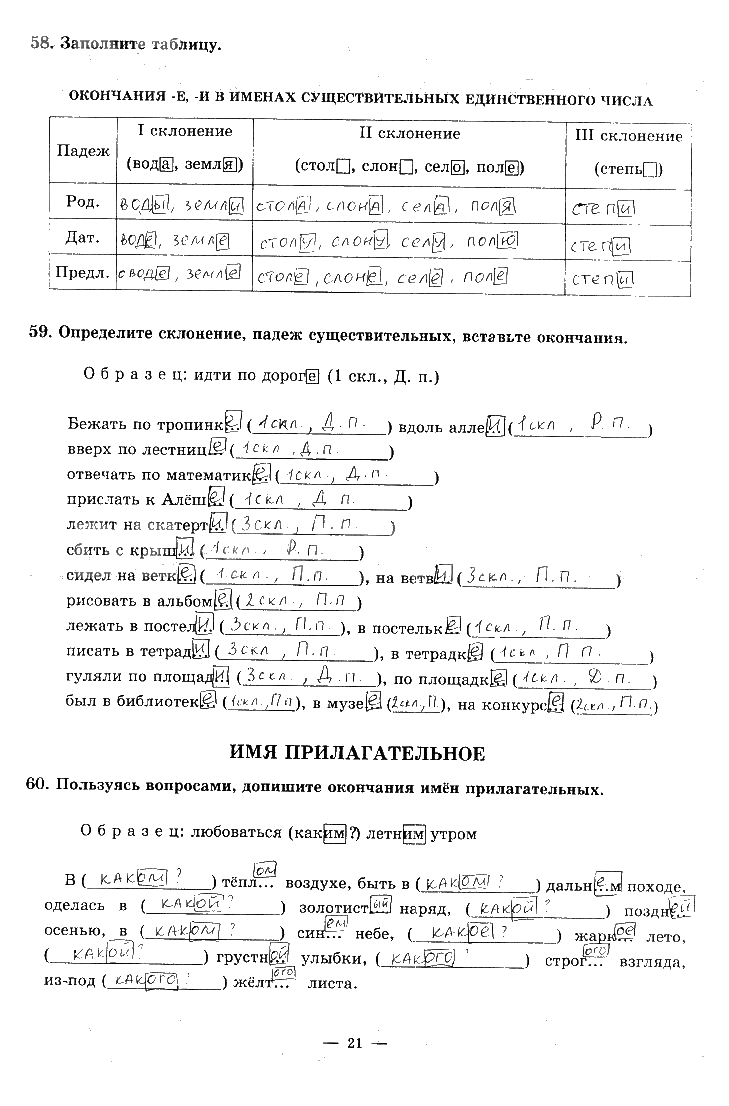 58. Заполните таблицу.
ОКОНЧАНИЯ -Е, -И В ИМЕНАХ СУЩЕСТВИТЕЛЬНЫХ ЕДИНСТВЕННОГО ЧИСЛА
Падеж I склонение (вода, земля) II склонение (стол, слон, село, поле) III склонение (степь)
Род. воды, земли стола, слона, села, поля степи
Дат. воде, земле столу, слону, селу, полю степи
Предл. с воде, земле столе, слоне, селе, поле степи
59. Определите склонение, падеж существительных, вставьте окончания.
Образец: идти по дороге (1 скл., Д. п.)
Бежать по тропинке (1скл., Д. п.) вдоль аллеи (1скл., Р. п.)
вверх по лестнице (1скл., Д. п.)
отвечать по математике (1скл., Д. п.)
прислать к Алёше (1скл., Д. п.)
лежит на скатерти (3скл., П. п.)
сбить с крыши (1скл., Р. п.)
сидел на ветке (1скл., П.п.), на ветви (3скл., П.п.)
рисовать в альбоме (2скл., П.п)
лежать в постели (3скл., П.п), в постельке (1скл., П. п.)
писать в тетради (3скл., П.п), в тетрадке (1скл., П п.)
гуляли по площади (3скл., Д.п.), по площадке (1скл., Д.п.)
был в библиотеке (1скл., Пп), в музее (2скл., П.), на конкурсе (2скл., П.п.)
ИМЯ ПРИЛАГАТЕЛЬНОЕ
60. Пользуясь вопросами, допишите окончания имён прилагательных.
Образец: любоваться (каким?) летним утром
В (каком?) тёпл...ом воздухе, быть в (каком?) дальнем походе,
оделась в (какой?) золотистый наряд, (какой?) поздней
осенью, в (каком?) син...ем небе, (какое?) жаркое лето,
(какой?) грустной улыбки, (какого) строг...ого взгляда,
из-под (какого) жёлт...ого листа.
— 21 —